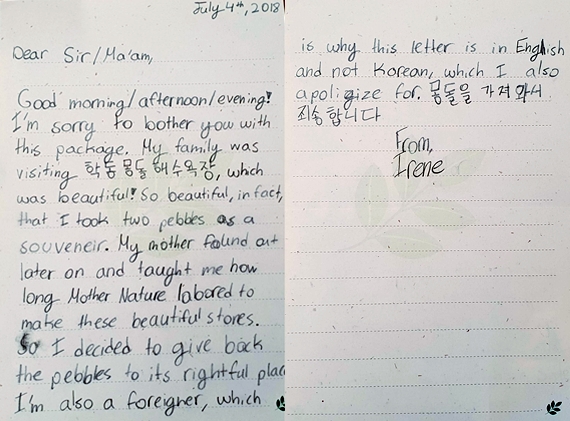 July 4th, 2018
Dear Sir/Ma'am,
Good morning/afternoon/evening!
I'm sorry to bother you with
this package. My family was
visiting 학동 몽돌 해수욕장, which
was beautiful! So beautiful, in fact,
that I took two pebbles as a
souveneir. My mother found out
later on and taught me how
long Mother Nature labored to
make these beautiful stores.
So I decided to give back
the pebbles to its rightful plac
I'm also a foreigner, which
is why this letter is in English
and not Korean, which I also
apoligize for. 몽돌을 가져와서
죄송합니다
From,
Irene